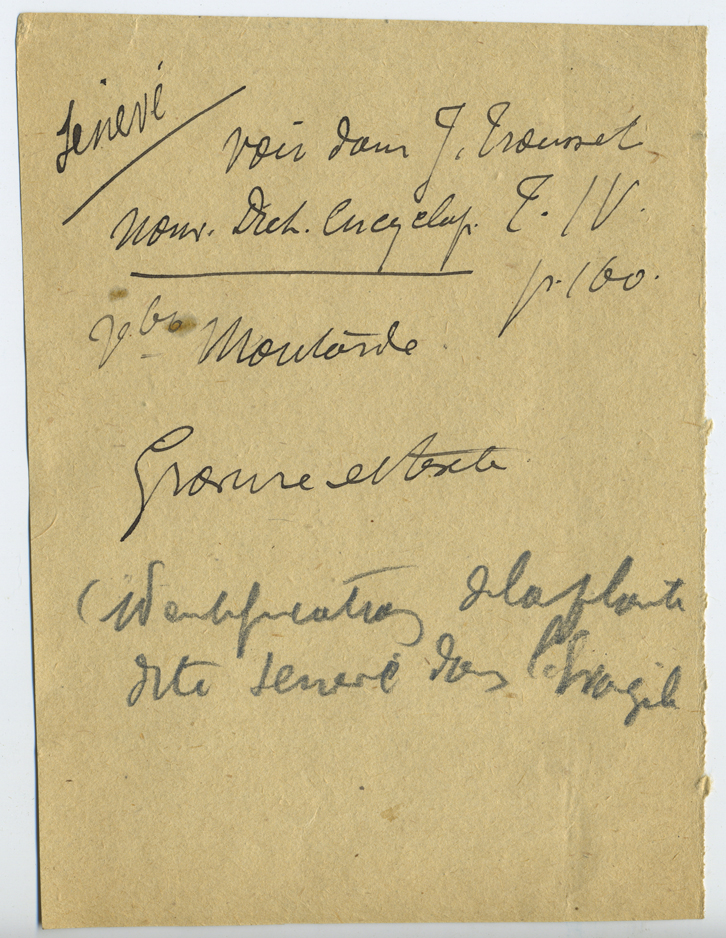 Sénevé
voir dans J. Trousset
Nouv. Dict. Encyclop. T. IV.
p. 160.
Vbo Moutarde
Gravure et texte
(identification de la plante
dite senevé dans l'Evangile